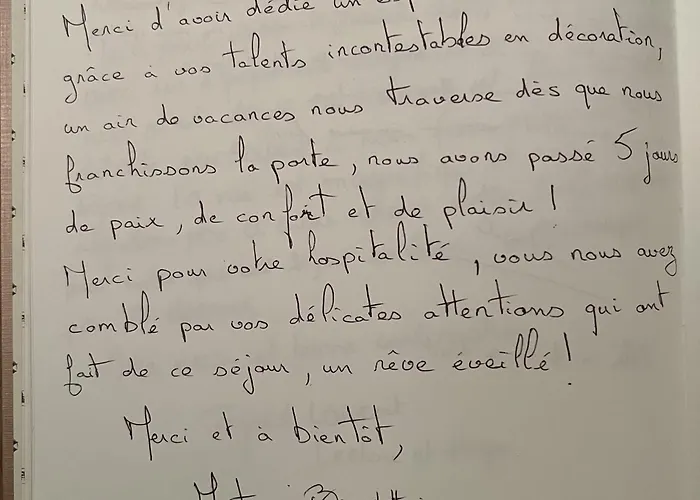 Merci d'avoir dédié un
grâce à vos talents incontestables en décoration,
un air de vacances nous traverse dès que nous
franchissons la porte, nous avons passé 5 jours
de paix, de confort et de plaisir !
Merci pour votre hospitalité, vous nous avez
comblé par vos délicates attentions qui ont
fait de ce séjour, un rêve éveillé !
Merci et à bientôt,